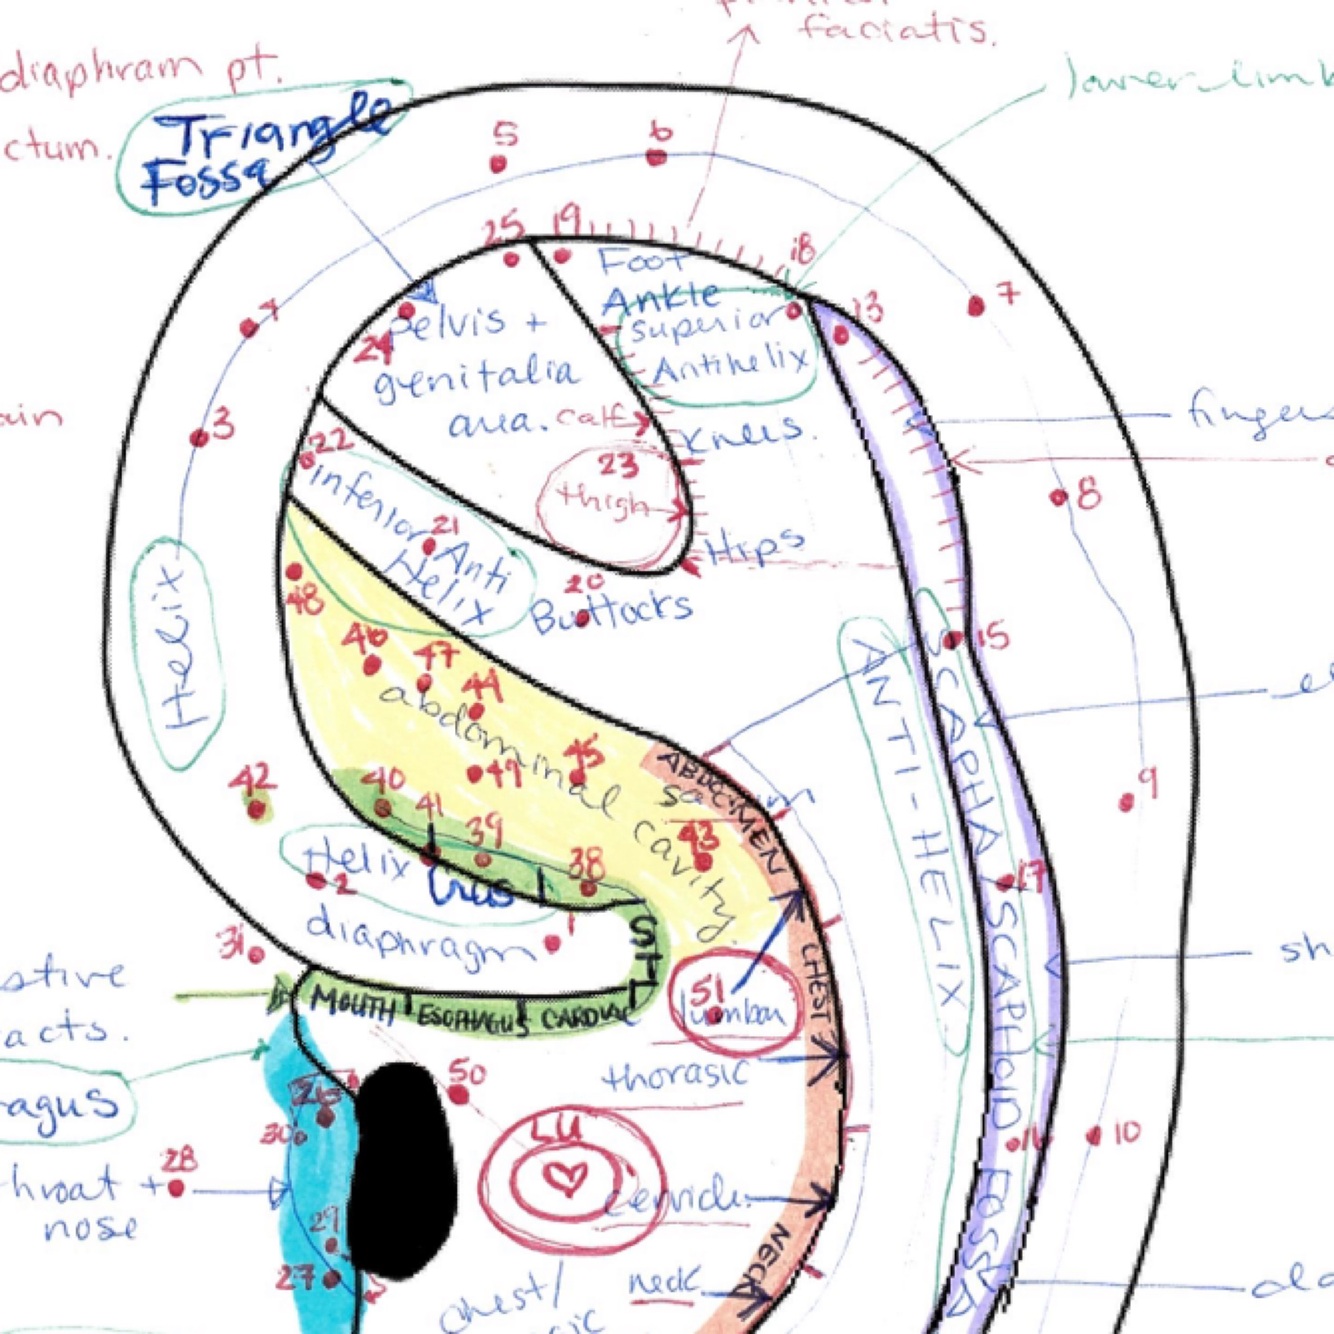 faciatis.
diaphram pt.
ctum.
Triangle
Fossa
5
6
lower limb
25
19
18
Foot
Ankle
superior
Antihelix
13
7
4
24
pelvis +
genitalia
area.
calf
Knees.
fingers
ain
3
22
23
thigh
8
inferior Anti
Helix
21
Hips
20
Buttocks
Helix
48
46
47
44
abdominal cavity.
45
49
15
SCAPHA / SCAPHOID FOSSA
ANTI-HELIX
ABDOMEN
42
40
41
39
38
43
9
Helix
Crus
2
diaphragm
1
17
31
ST
CHEST
51
lumbar
sh
stive
acts.
MOUTH
ESOPHAGUS
CARDIAC
thorasic
agus
50
26
30
LU
16
10
28
throat +
nose
29
27
NECK
neck
chest/